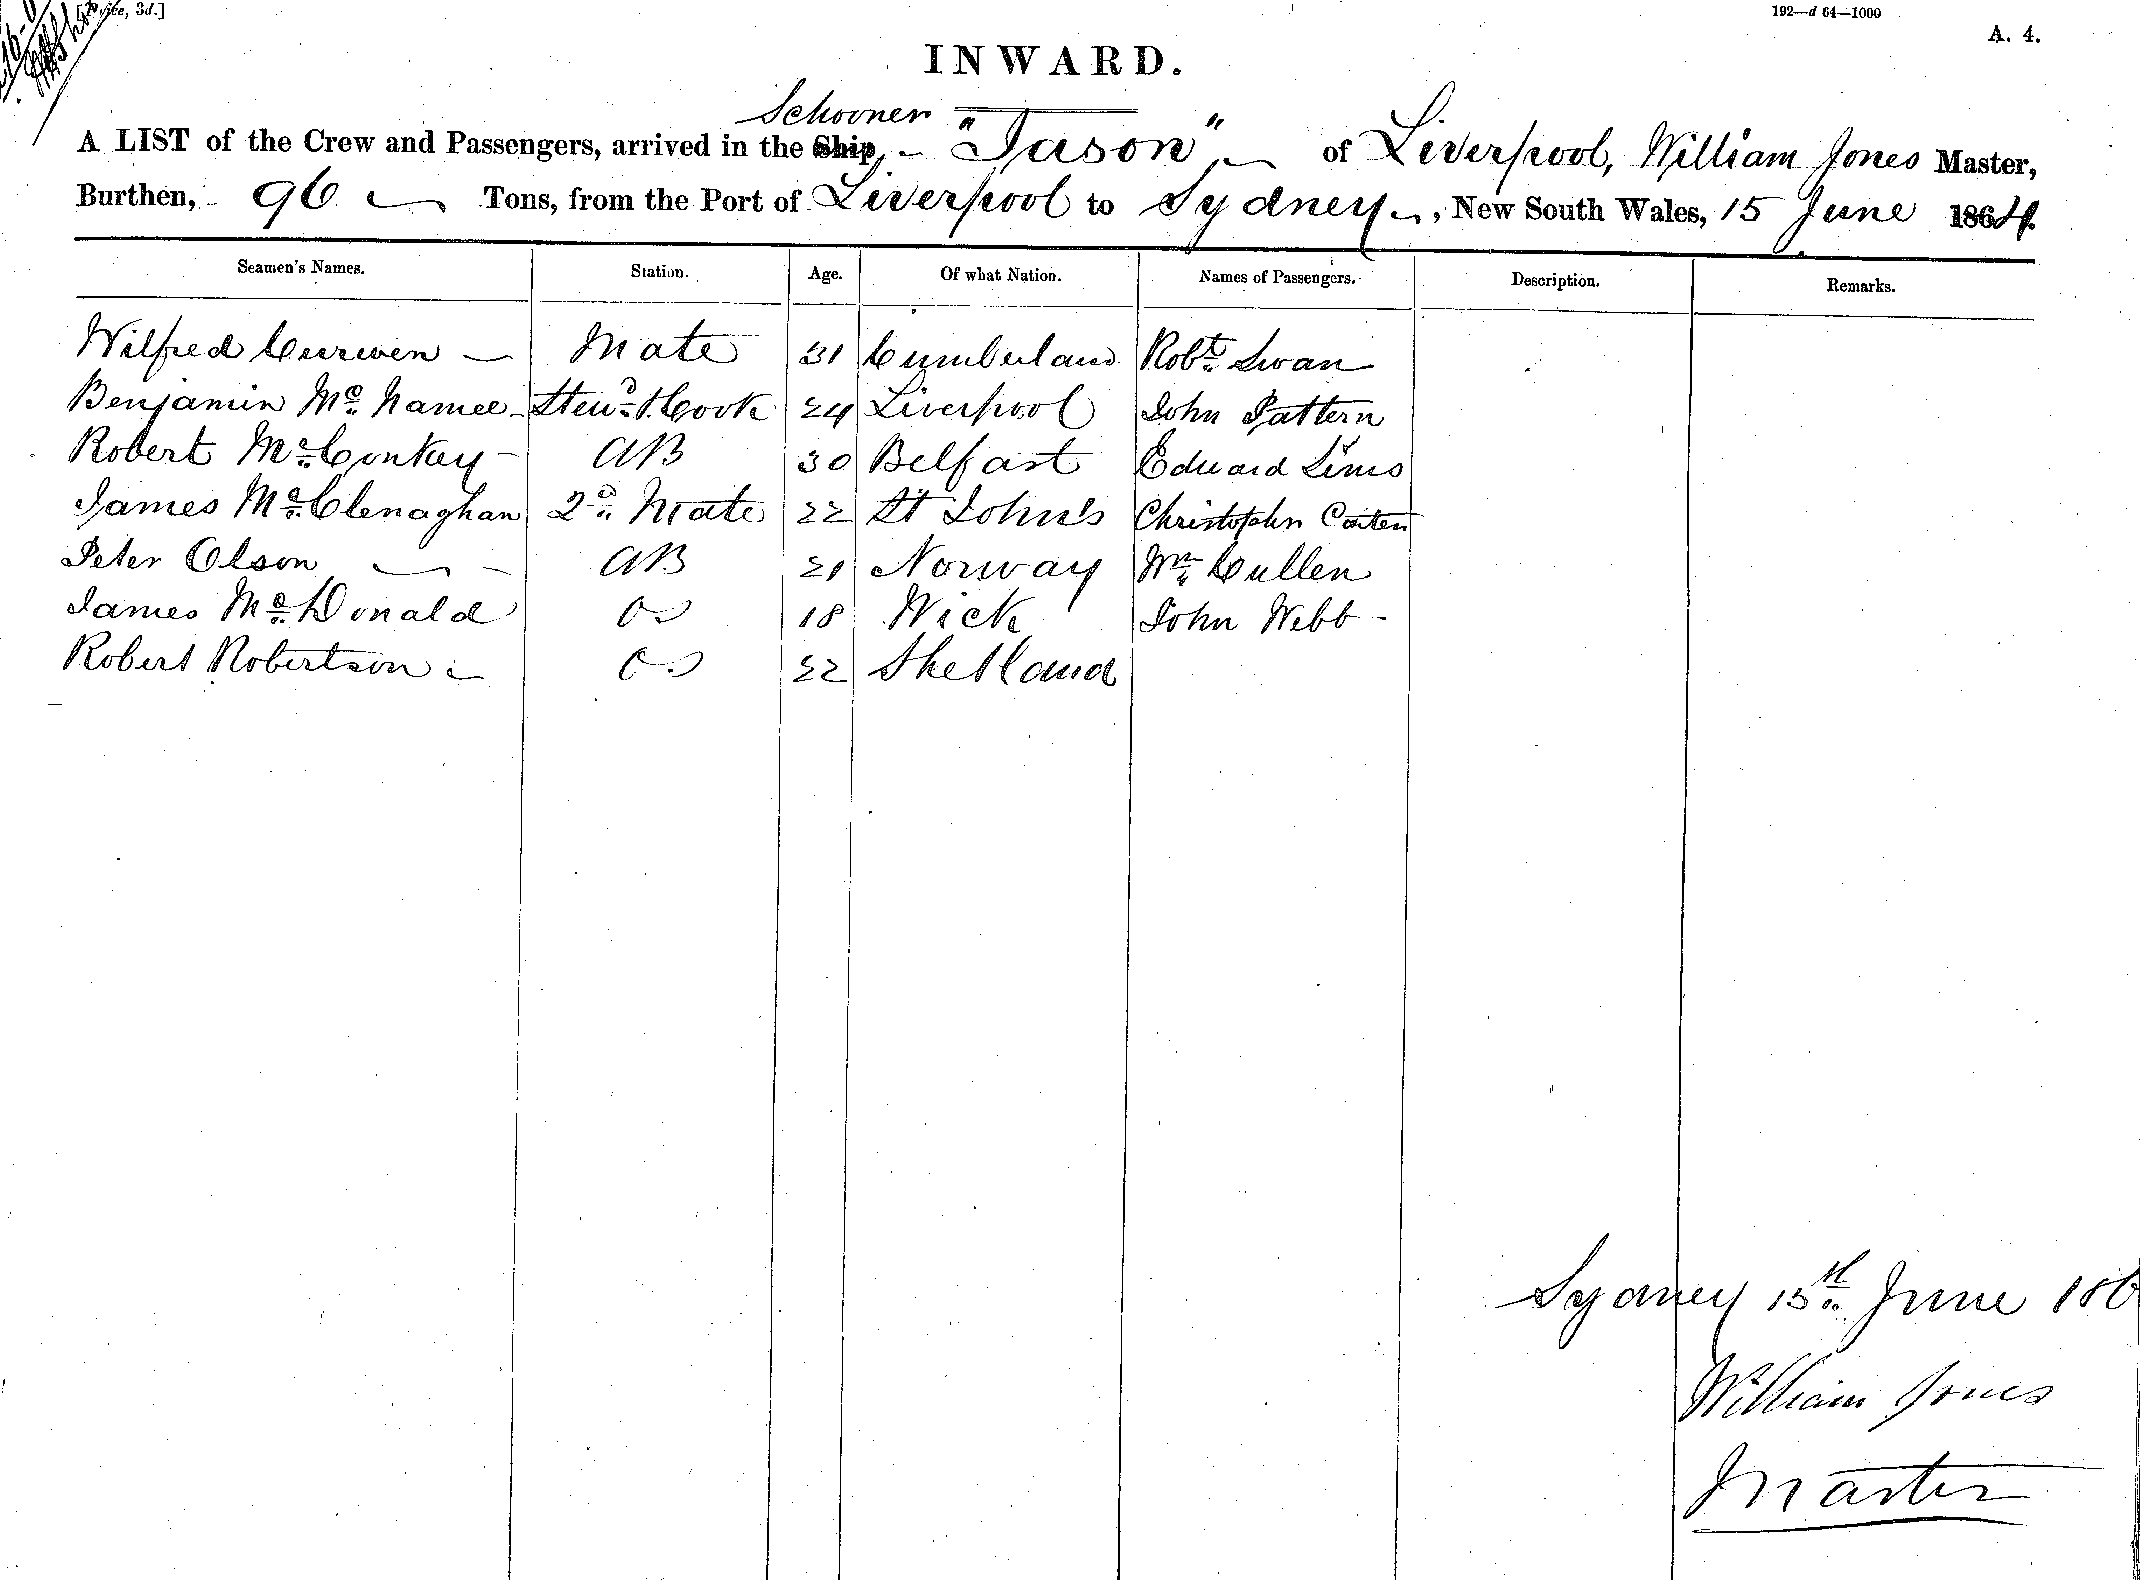 [Price, 3d.]
192—d 64—1000
A. 4.
INWARD.
Schooner
A LIST of the Crew and Passengers, arrived in the Ship, "Jason" of Liverpool, William Jones Master,
Burthen, 96 Tons, from the Port of Liverpool to Sydney, New South Wales, 15 June 1864.
Seamen's Names. Station. Age. Of what Nation. Names of Passengers. Description. Remarks.
Wilfred Curwen — Mate 31 Cumberland Robt. Swan
Benjamin Mc. Namee Stewd. & Cook 24 Liverpool John Pattern
Robert Mc. Conkey AB 30 Belfast Edward Sims
James Mc. Clenaghan 2d. Mate 22 St John's Christophr
Peter Olson AB 21 Norway Wm. Cullen
James Mc. Donald OS 18 Wick John Webb
Robert Robertson OS 22 Shetland
Sydney 15th. June 186
William Jones
Master